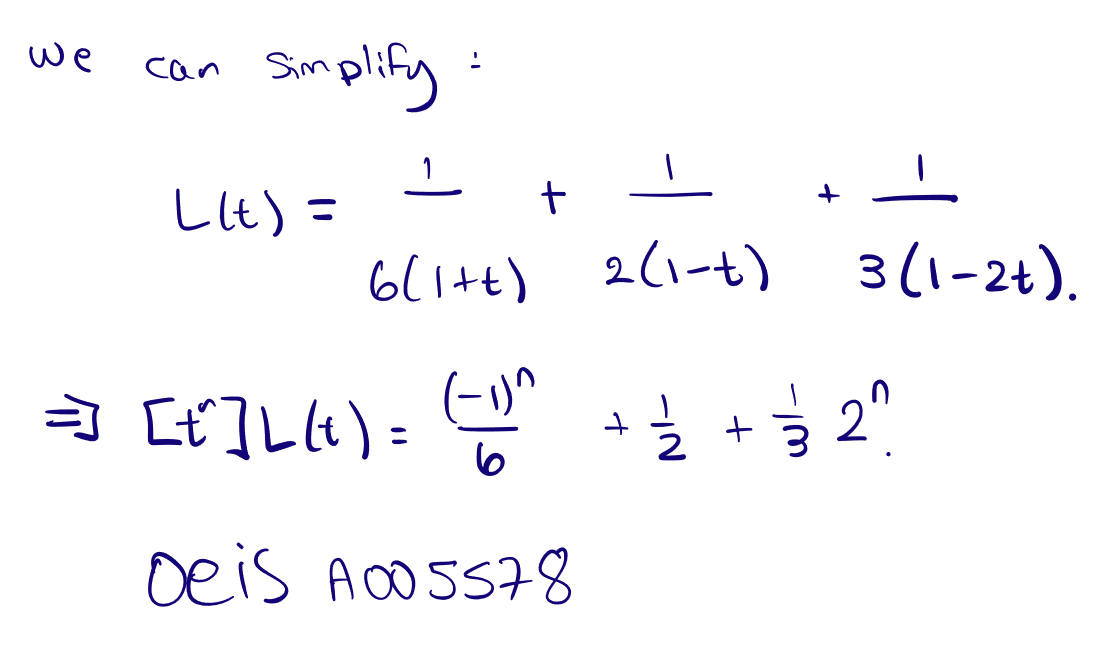 we can simplify:
L(t) = 1/6(1+t) + 1/2(1-t) + 1/3(1-2t).
⇒ [tⁿ]L(t) = (-1)ⁿ/6 + 1/2 + 1/3 2ⁿ.
OEiS A005578